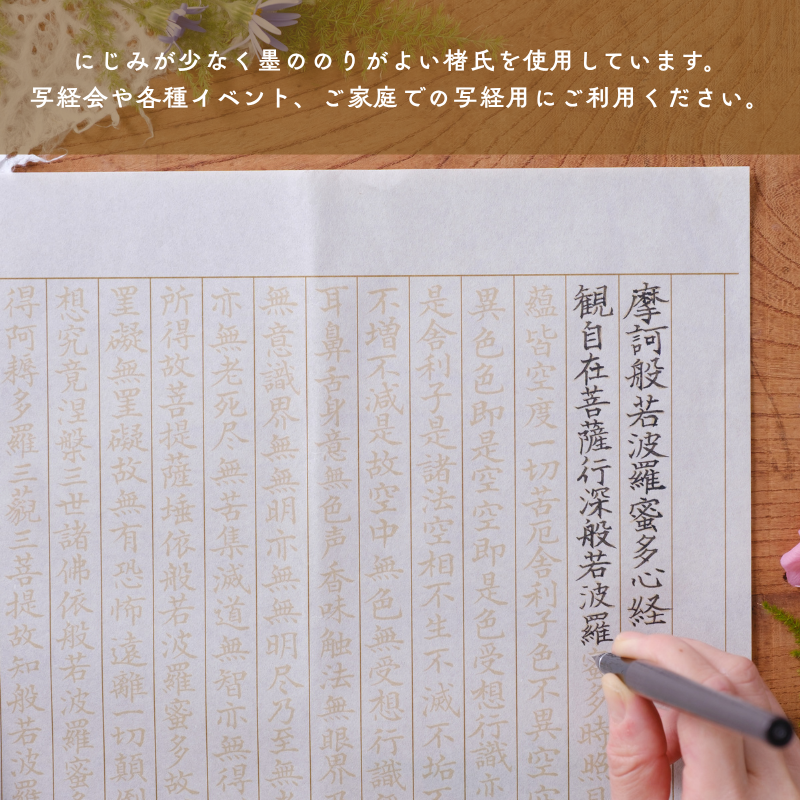 にじみが少なく墨ののりがよい楮氏を使用しています。
写経会や各種イベント、ご家庭での写経用にご利用ください。
摩訶般若波羅蜜多心経
観自在菩薩行深般若波羅蜜多時照見
蘊皆空度一切苦厄舎利子色不異空空
異色色即是空空即是色受想行識亦
是舎利子是諸法空相不生不滅不垢不
不増不減是故空中無色無受想行識無
耳鼻舌身意無色声香味触法無眼界乃
無意識界無無明亦無無明尽乃至無老
亦無老死尽無苦集滅道無智亦無得
所得故菩提薩埵依般若波羅蜜多故
罣礙無罣礙故無有恐怖遠離一切顛倒
想究竟涅槃三世諸佛依般若波羅蜜多
得阿耨多羅三藐三菩提故知般若波羅